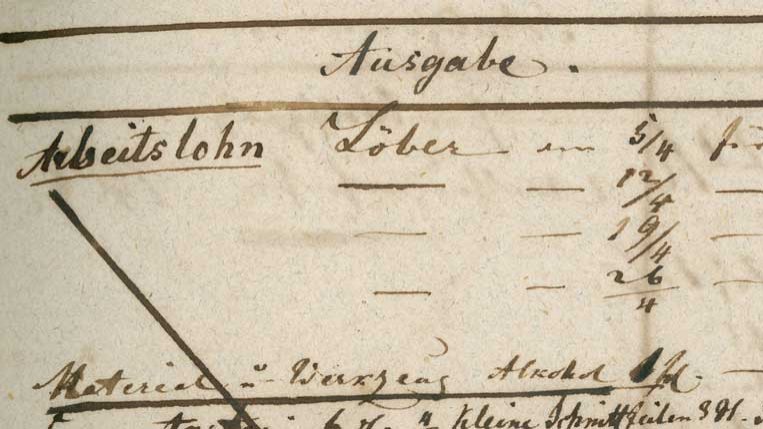 Ausgabe.
Arbeitslohn Löber — am 5/4 für
— — 12/4 —
— — 19/4 —
— — 26/4 —
Material u. Werkzeug Alkohol 1 fl. —
6 St. " kleine Schnittfeilen 3 St.